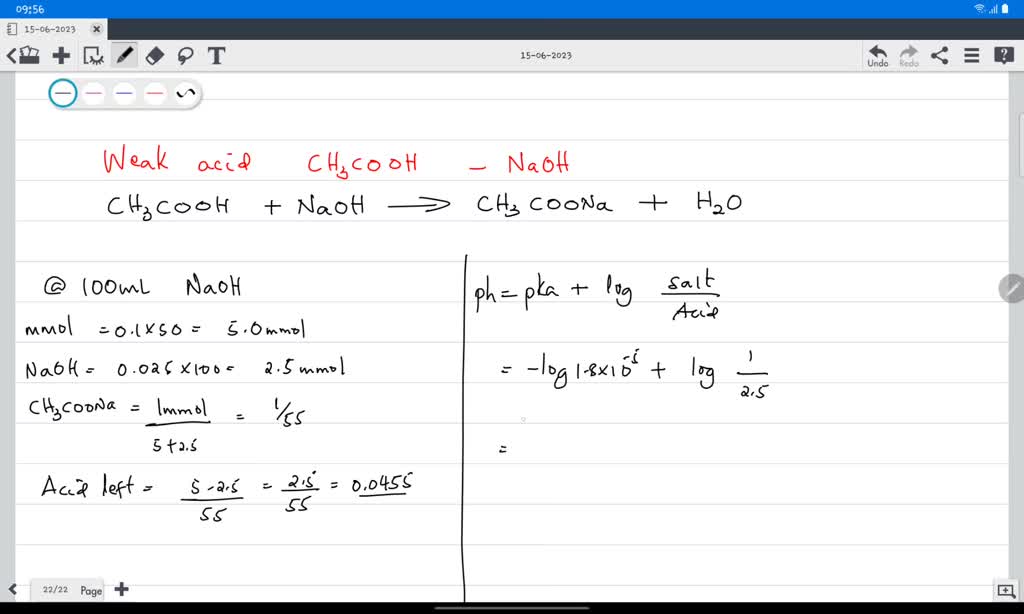 09:56
15-06-2023
T
15-06-2023
Undo
Redo
Weak acid CH3COOH - NaOH
CH3COOH + NaOH → CH3COONa + H2O
@ 100mL NaOH
mmol = 0.1 x 50 = 5.0 mmol
NaOH = 0.025 x 100 = 2.5 mmol
CH3COONa = 1mmol / 5+2.5 = 1/55
Acid left = 5-2.5 / 55 = 2.5 / 55 = 0.0455
ph = pka + log salt / Acid
= -log 1.8x10^-5 + log 1 / 2.5
=
22/22 Page